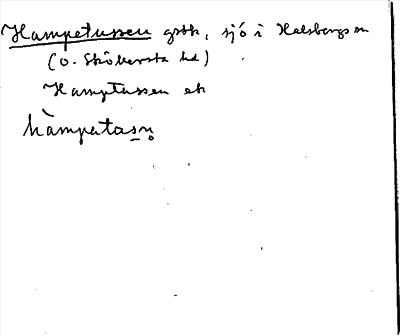 Hampetussen gstk, sjö i Halsbergs sn
(ö. Sköversta hd)
Hamptussen ek
hàmpatasn̥